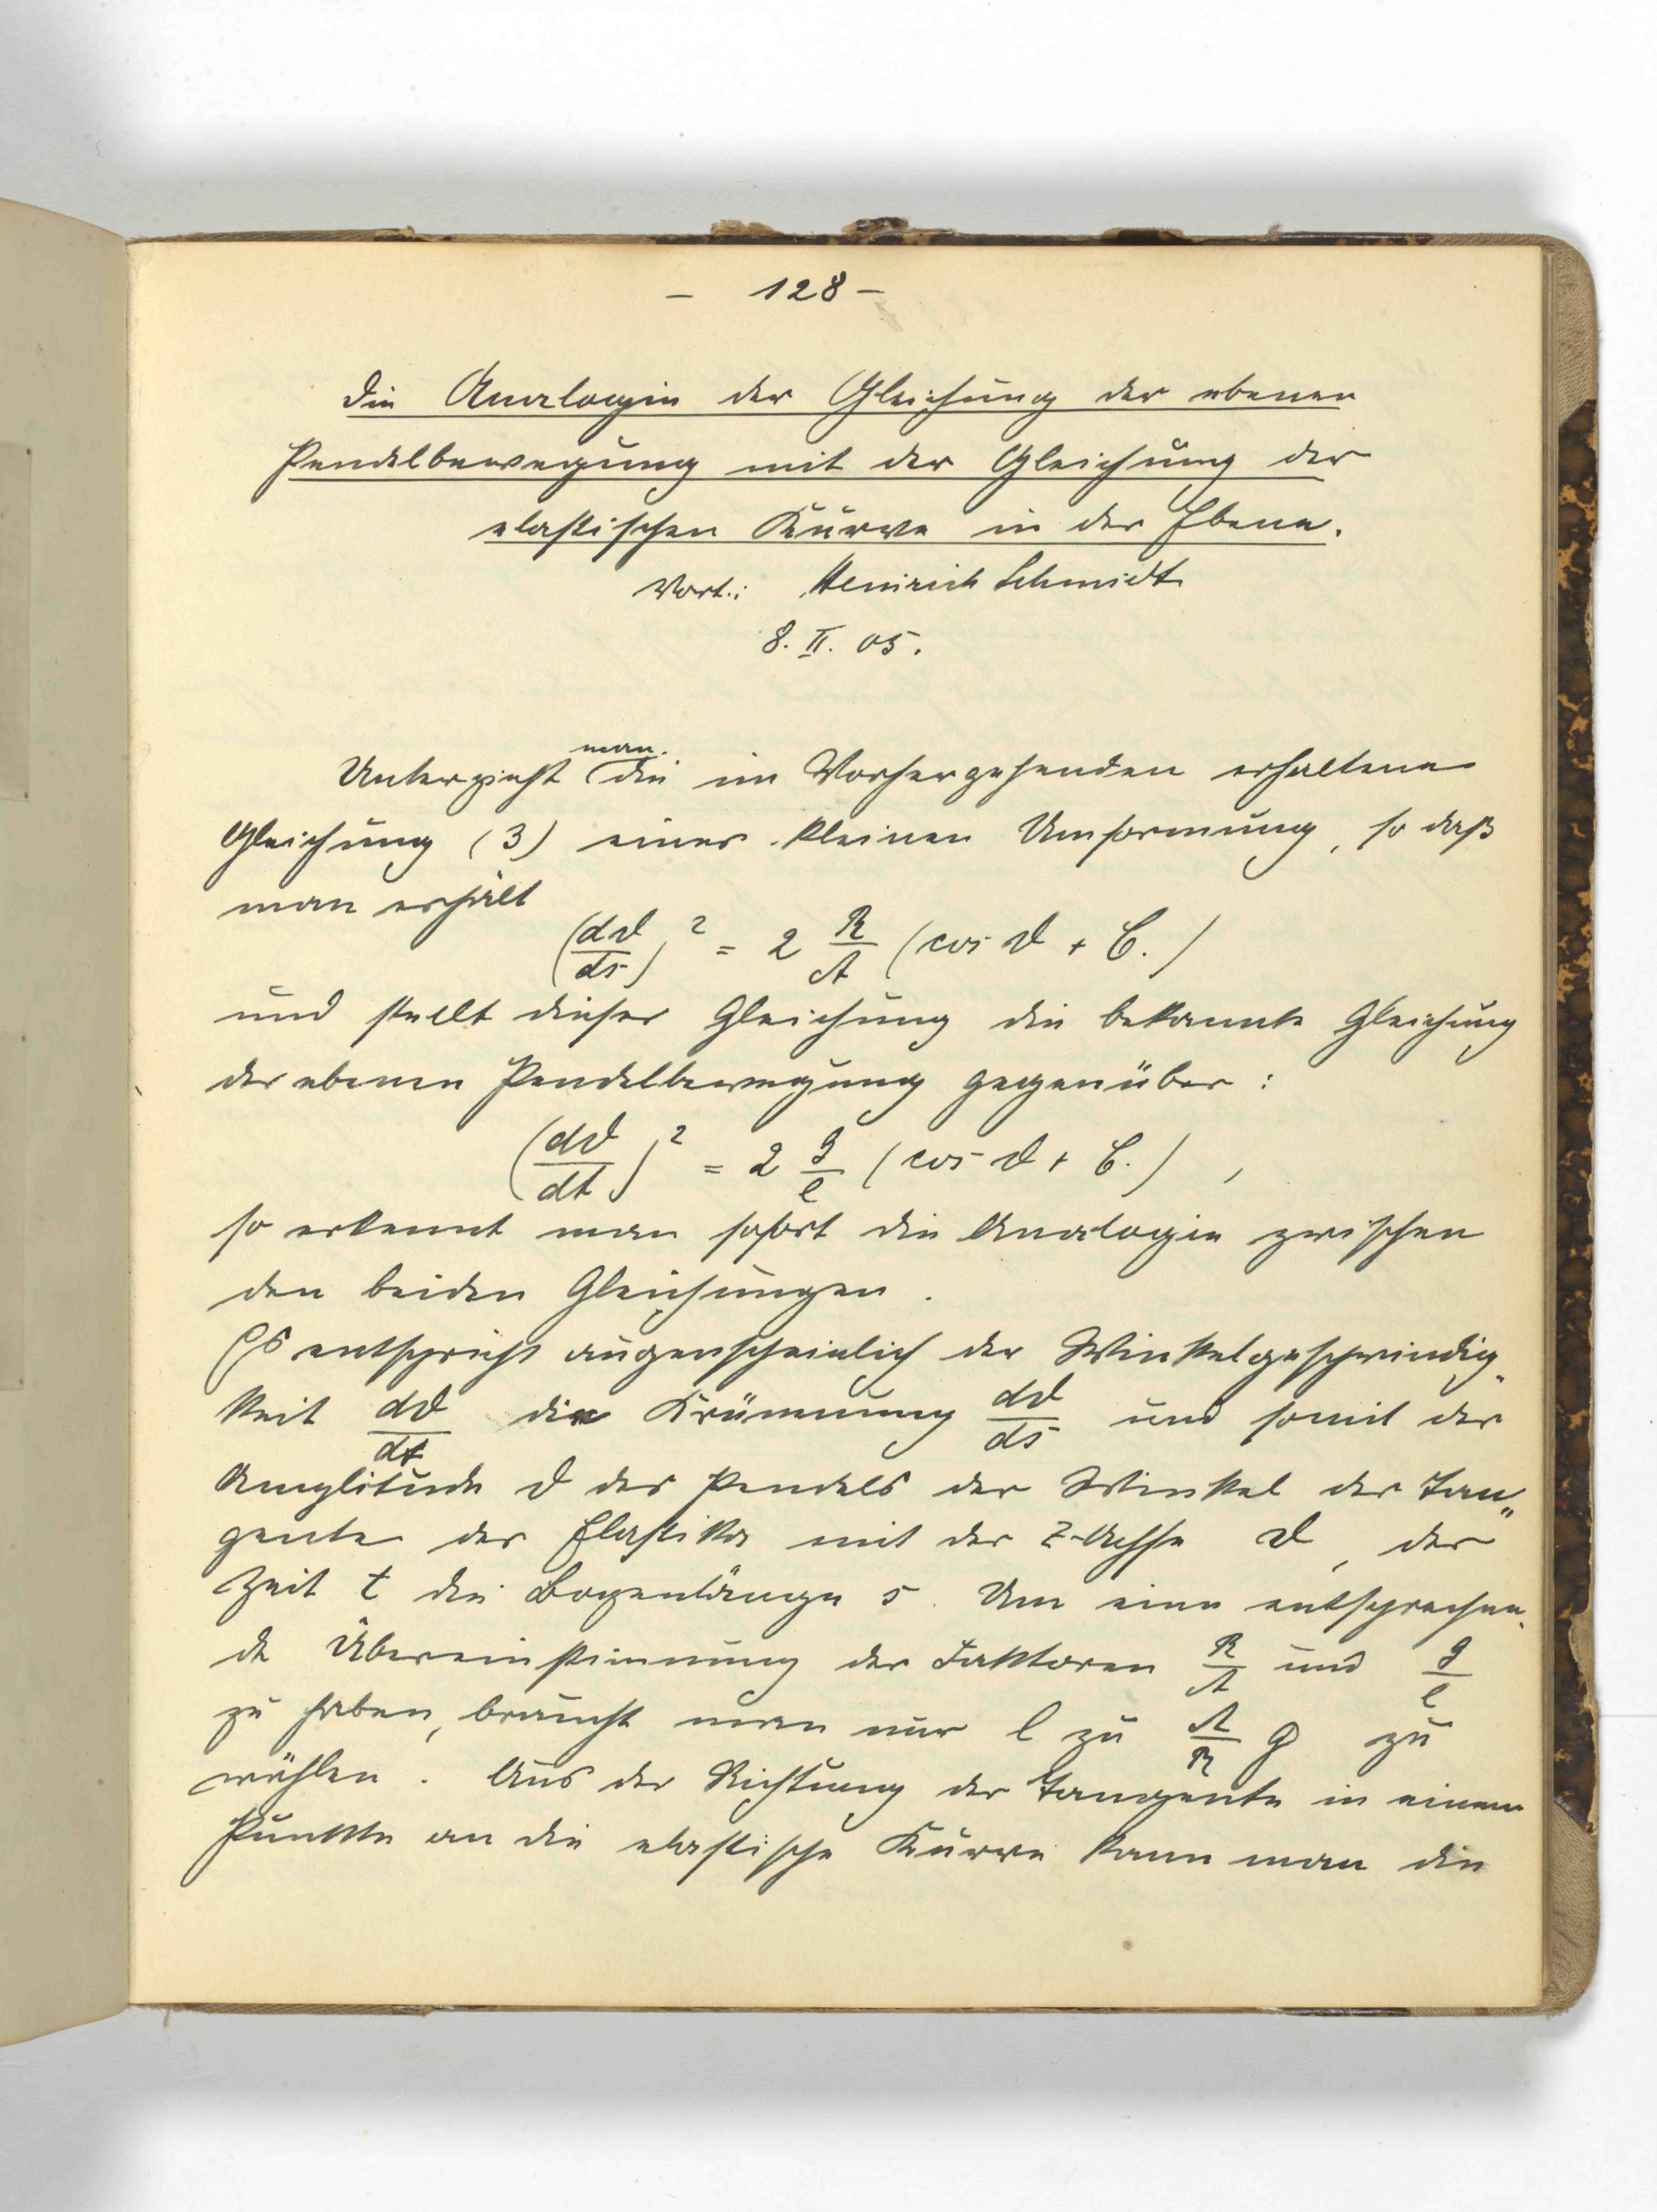 – 128 –
Die Analogie der Gleichung der ebenen
Pendelbewegung mit der Gleichung der
elastischen Kurve in der Ebene.
Vort.: Heinrich Schmidt
8. II. 05.
man
Unterzieht die im Vorhergehenden erhaltene
Gleichung (3) einer kleinen Umformung, so daß
man erhält
(dϑ/ds)² = 2 R/A (cos ϑ + C.)
und stellt dieser Gleichung die bekannte Gleichung
der ebenen Pendelbewegung gegenüber:
(dϑ/dt)² = 2 g/l (cos ϑ + C.),
so erkennt man sofort die Analogie zwischen
den beiden Gleichungen.
Es entspricht augenscheinlich der Winkelgeschwindig-
keit dϑ/dt die Krümmung dϑ/ds und somit der
Amplitude ϑ des Pendels der Winkel der Tan-
gente der Elastika mit der z-Achse ϑ, der
Zeit t die Bogenlänge s. Um eine entsprechen-
de Übereinstimmung der Faktoren R/A und g/l
zu haben, braucht man nur l zu A/R g zu
wählen. Aus der Richtung der Tangente in einem
Punkte an die elastische Kurve kann man die